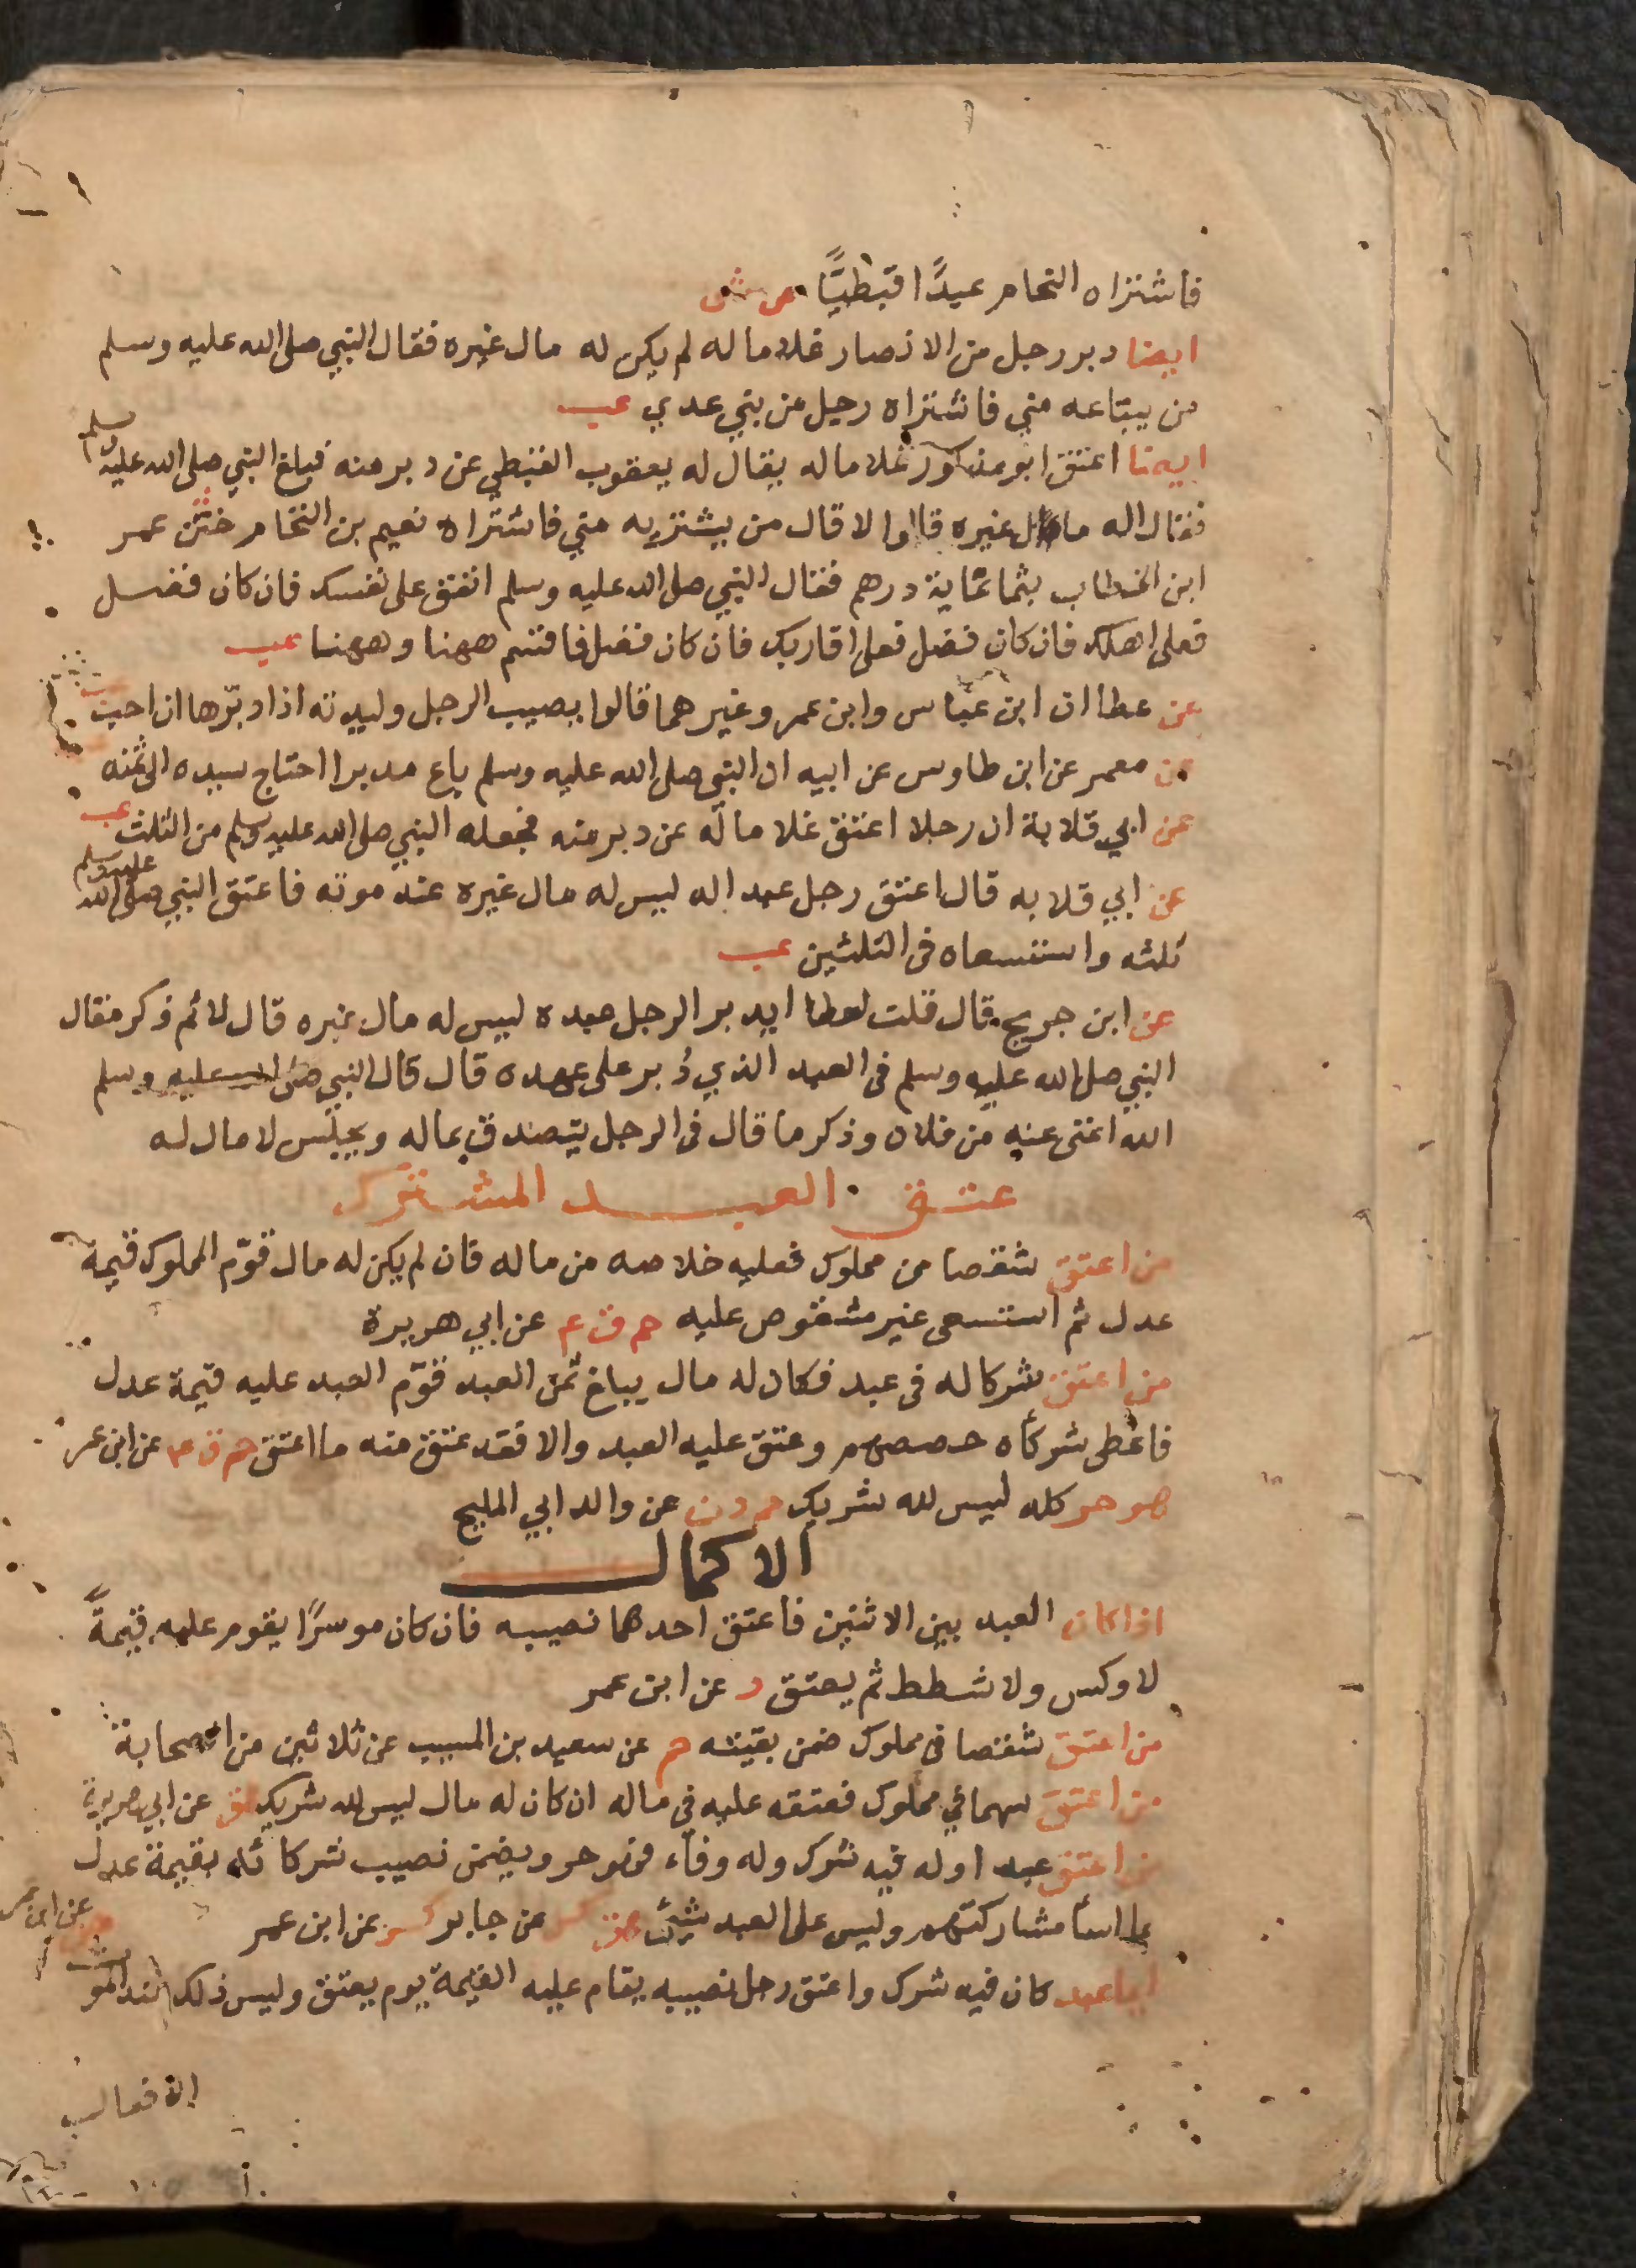 فاشتراه النحام عبدًا قبطيًّا ص ش
ايضا دبر رجل من الانصار غلاما له لم يكن له مال غيره فقال النبي صلى الله عليه وسلم
من يبتاعه مني فاشتراه رجل من بني عدي عب
ايضا اعتق ابو مذكور غلاما له يقال له يعقوب القبطي عن دبر منه فبلغ النبي صلى الله عليه وسلم
فقال اله مال غيره قالوا لا قال من يشتريه مني فاشتراه نعيم بن النحام ختن عمر
ابن الخطاب بثمانماية درهم فقال النبي صلى الله عليه وسلم انفق على نفسك فان كان فضل
فعلى اهلك فان كان فضل فعلى اقاربك فان كان فضل فاقسم ههنا وههنا عب
عن عطا ان ابن عباس وابن عمر وغيرهما قالوا يصيب الرجل وليدته اذا دبّرها ان احب
عن معمر عن ابن طاوس عن ابيه ان النبي صلى الله عليه وسلم باع مدبرا احتاج سيده الى ثمنه عب
عن ابي قلابة ان رجلا اعتق غلاما له عن دبر منه فجعله النبي صلى الله عليه وسلم من الثلث
عن ابي قلابه قال اعتق رجل عبدا له ليس له مال غيره عند موته فاعتق النبي صلى الله عليه وسلم
ثلثه واستسعاه فى الثلثين عب
عن ابن جريج قال قلت لعطا ايدبر الرجل عبده ليس له مال غيره قال لا ثم ذكر فقال
النبي صلى الله عليه وسلم فى العبد الذي دُبر على عهده قال قال النبي صلى الله عليه وسلم
الله اغنى عنه من فلان وذكر ما قال فى الرجل يتصدق بماله ويجلس لا مال له
عتق العبد المشترك
من اعتق شقصا من مملوك فعليه خلاصه من ماله فان لم يكن له مال قوّم المملوك قيمة
عدل ثم استسعى غير مشقوص عليه حم ق ع عن ابي هريرة
من اعتق شركا له فى عبد فكان له مال يبلغ ثمن العبد قوّم العبد عليه قيمة عدل
فاعطى شركاه حصصهم وعتق عليه العبد والا فقد عتق منه ما اعتق حم ق ع عن ابن عمر
هو حر كله ليس لله شريك حم د ن عن والد ابي المليح
الاكمال
اذا كان العبد بين الاثنين فاعتق احدهما نصيبه فان كان موسرًا يقوم عليه قيمةً
لا وكس ولا شطط ثم يعتق د عن ابن عمر
من اعتق شقصا فى مملوك ضمن بقيته حم عن سعيد بن المسيب عن ثلاثين من الصحابة
من اعتق سهما في مملوك فعتقه عليه فى ماله ان كان له مال ليس لله شريك ق عن ابي هريرة
من اعتق عبدا وله فيه شرك وله وفاء فهو حر ويضمن نصيب شركائه بقيمة عدل
لما اسأ مشاركتهم وليس على العبد شيئ عن جابر عن ابن عمر
ايما عبد كان فيه شرك واعتق رجل نصيبه يقام عليه القيمة يوم يعتق وليس ذلك عند الموت عن ابن عمر